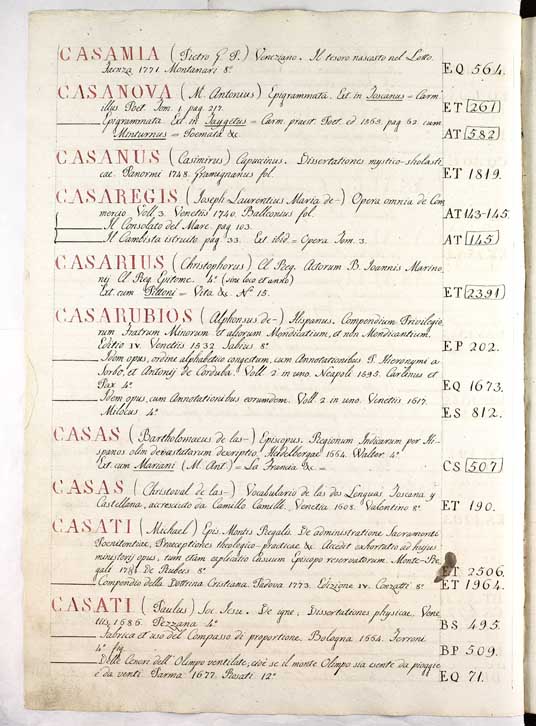 CASAMIA (Pietro G. P.) Venezano. Il tesoro nascosto nel Lotto.
Faenza 1771. Montanari 8° EQ 564.
CASANOVA (M. Antonius) Epigrammata. Ext. in Toscanus = Carm.
illus. Poet. Tom. 1. pag. 217. ET 261
Epigrammata. Ext. in Taygetus = Carm. praest. Poet. ed 1563. pag. 62. cum
Minturnus = Poemata &c. AT 582
CASANUS (Casimirus) Capuccinus. Dissertationes mystico-sholasti
cae. Panormi 1748. Gramignanus fol. ET 1819.
CASAREGIS (Joseph Laurentius Maria de-) Opera omnia de Com
mercio Voll. 3. Venetiis 1740. Balleonius fol. AT 143-145.
Il Consolato del Mare. pag. 103.
Il Cambista istruito pag. 33. Ext. ibid = Opera Tom. 3. AT 145
CASARIUS (Christophorus) Cl. Reg. Actorum B. Joannis Marino,
nij Cl. Reg. Epitome. 4° (sine loco et anno)
Ext. cum Pittoni = Vita &c. N° 15. ET 2391
CASARUBIOS (Alphonsus de-) Hispanus. Compendium Privilegio,
rum Fratrum Minorum et aliorum Mendicatium, et non Mendicantium.
Editio IV. Venetiis 1532. Sabius 8° EP 202.
Idem opus, ordine alphabetico congestum, cum Annotationibus P. Hieronymi a
Sorbo, et Antonij de Corduba. Voll. 2 in uno. Neapoli 1595. Carlinus et
Pax 4° EQ 1673.
Idem opus, cum Annotationibus eorumdem. Voll. 2 in uno. Venetiis 1617.
Milocus 4° ES 812.
CASAS (Bartholomaeus de las-) Episcopus. Regionum Indicarum per Hi-
spanos olim devastatarum descriptio. Heidelbergae 1664. Walter. 4°
Ext. cum Mariani (M. Ant.) = La Francia &c. = CS 507
CASAS (Christoval de las-) Vocabulario de las dos Lenguas Toscana, y
Castellana, acresciuto da Camillo Camilli. Venetia 1608. Valentino 8° ET 190.
CASATI (Michael) Epis. Montis Regalis. De administratione Sacramenti
Poenitentiae, Praeceptiones theologico-practicae &c. Accedit exhortatio ad hujus
ministerij opus; tum etiam explicatio casuum Episcopo reservatorum. Monte-Re,
gali 1781. De Rubeis 8° ET 2506.
Compendio della Dottrina Cristiana. Padova 1773. Edizione IV. Conzatti 8° ET 1964.
CASATI (Paulus) Soc. Jesu. De igne; Dissertationes physicae. Vene
tiis 1686. Pezzana 4° BS 495.
Fabrica et uso del Compasso di proportione. Bologna 1664. Ferroni
4° fig. BP 509.
Delle Ceneri dell'Olimpo ventilate, cioè se il monte Olimpo sia esente da pioggie
e da venti. Parma 1677. Rosati 12° EQ 71.